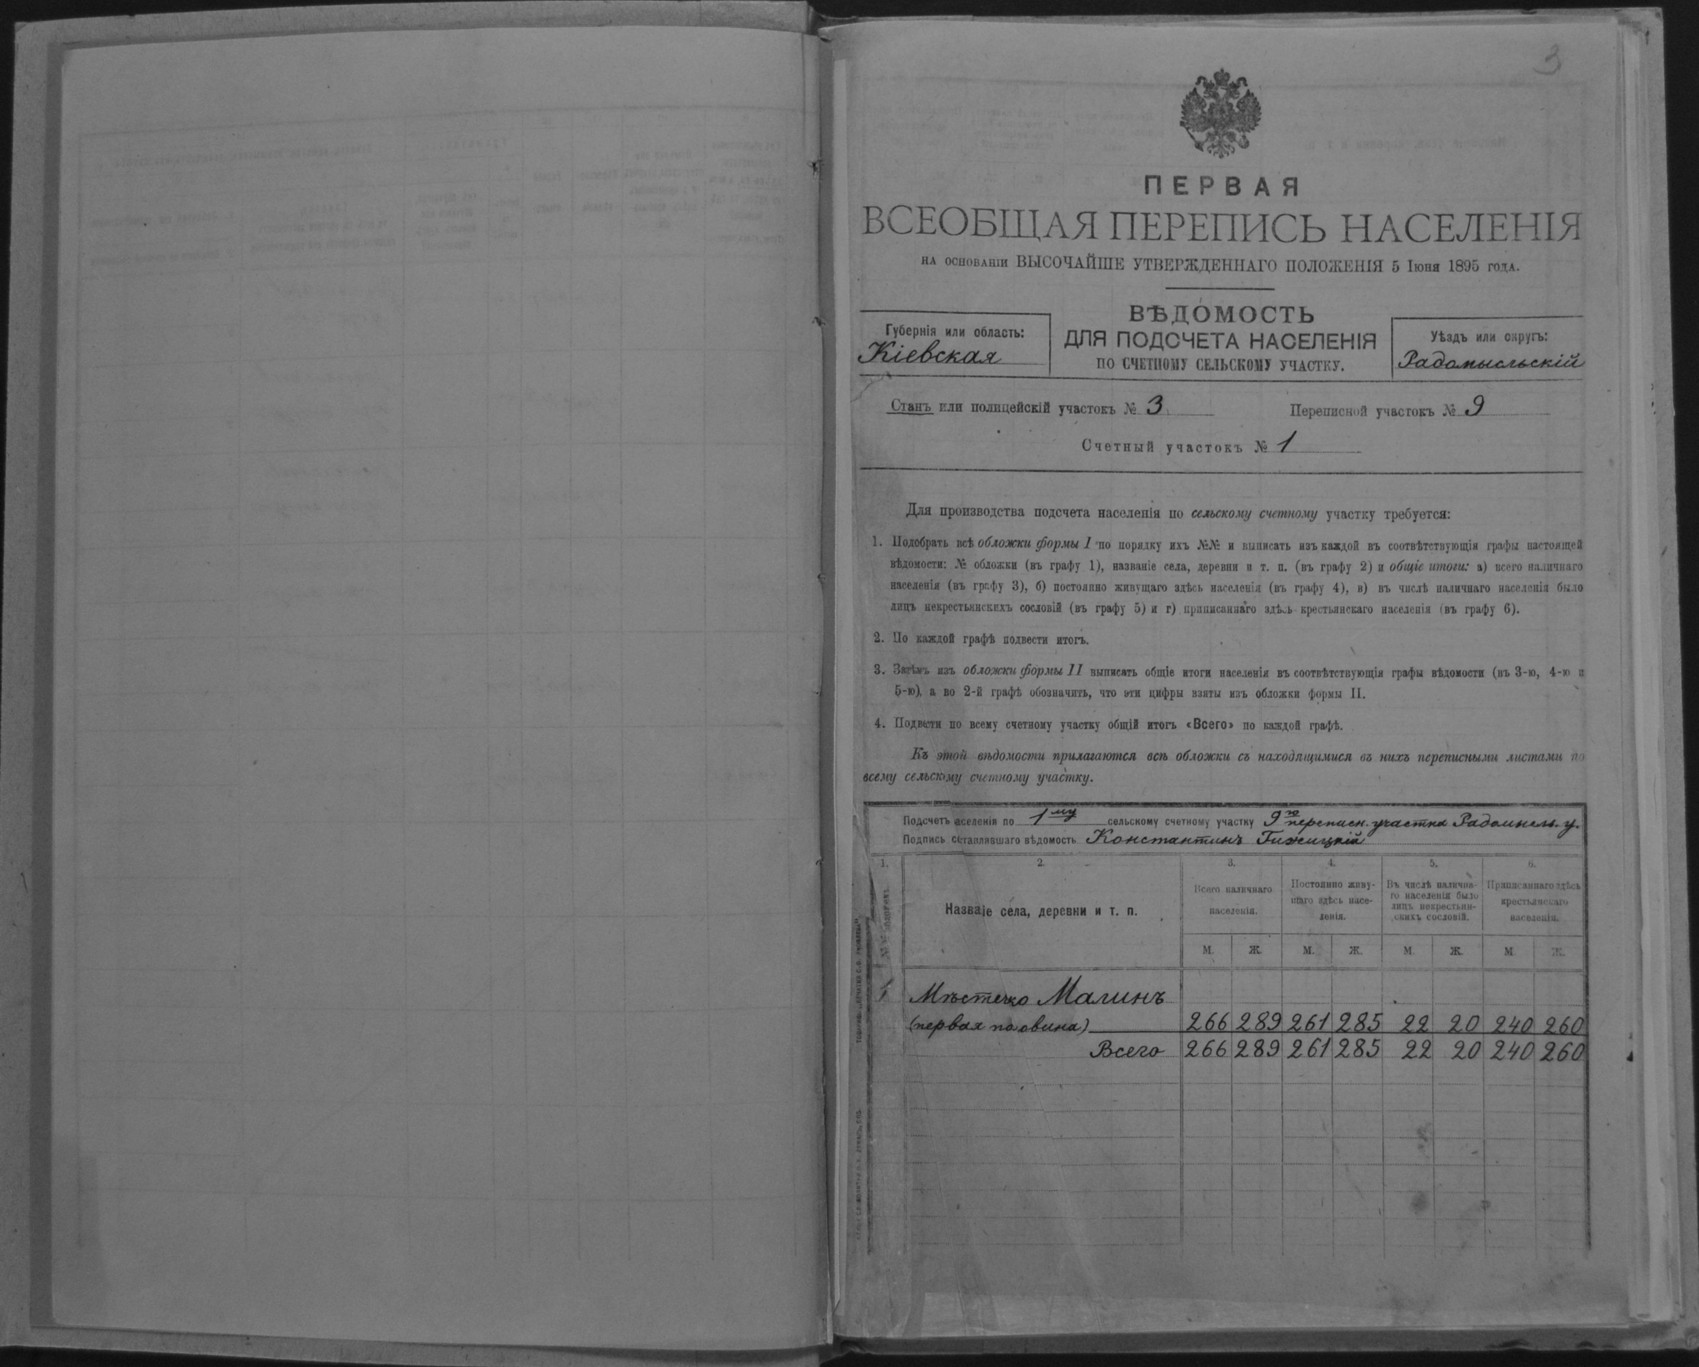 3
ПЕРВАЯ
ВСЕОБЩАЯ ПЕРЕПИСЬ НАСЕЛЕНІЯ
НА ОСНОВАНІИ ВЫСОЧАЙШЕ УТВЕРЖДЕННАГО ПОЛОЖЕНІЯ 5 Іюня 1895 ГОДА.
ВѢДОМОСТЬ
ДЛЯ ПОДСЧЕТА НАСЕЛЕНІЯ
ПО СЧЕТНОМУ СЕЛЬСКОМУ УЧАСТКУ.
Губернія или область:
Кіевская
Уѣздъ или округъ:
Радомысльскій
Станъ или полицейскій участокъ № 3. Переписной участокъ № 9
Счетный участокъ № 1
Для производства подсчета населенія по сельскому счетному участку требуется:
1. Подобрать всѣ обложки формы I по порядку ихъ №№ и выписать изъ каждой въ соотвѣтствующія графы настоящей
вѣдомости: № обложки (въ графу 1), названіе села, деревни и т. п. (въ графу 2) и общіе итоги: а) всего наличнаго
населенія (въ графу 3), б) постоянно живущаго здѣсь населенія (въ графу 4), в) въ числѣ наличнаго населенія было
лицъ некрестьянскихъ сословій (въ графу 5) и г) приписаннаго здѣсь крестьянскаго населенія (въ графу 6).
2. По каждой графѣ подвести итогъ.
3. Затѣмъ изъ обложки формы II выписать общіе итоги населенія въ соотвѣтствующія графы вѣдомости (въ 3-ю, 4-ю и
5-ю), а во 2-й графѣ обозначить, что эти цифры взяты изъ обложки формы II.
4. Подвести по всему счетному участку общій итогъ «Всего» по каждой графѣ.
Къ этой вѣдомости прилагаются всѣ обложки съ находящимися въ нихъ переписными листами по
всему сельскому счетному участку.
Подсчетъ населенія по 1му сельскому счетному участку 9го переписн. участка Радомысл. у.
Подпись составлявшаго вѣдомость Константинъ Гижицкій
1. 2. 3. 4. 5. 6.
Названіе села, деревни и т. п.
Всего наличнаго населенія.
Постоянно живущаго здѣсь населенія.
Въ числѣ наличнаго населенія было лицъ некрестьянскихъ сословій.
Приписаннаго здѣсь крестьянскаго населенія.
М. Ж. М. Ж. М. Ж. М. Ж.
1 Мѣстечко Малинъ
(первая половина) 266 289 261 285 22 20 240 260
Всего 266 289 261 285 22 20 240 260